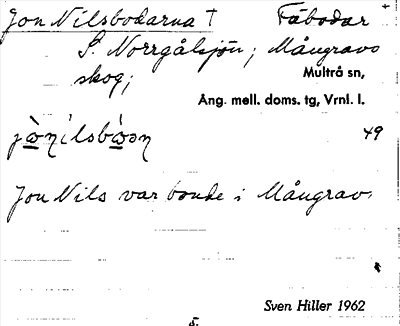 Jon Nilsbodarna † Fäbodar
S. Norrgålsjön; Mångravs
skog; Multrå sn,
Ång. mell. doms. tg, Vrnl. l.
49
Jon Nils var bonde i Mångrav.
Sven Hiller 1962